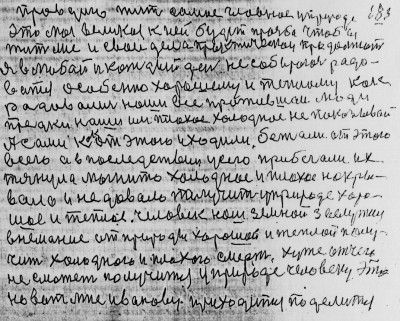 проводить тит самое главное у природе
183
Это моя великая к ней будет прозьба чтоб в
жити мне и свои дела практически продолжать
я в любой и каждый день не собирался радо
вать особенно хорошему и теплому кое
радовали наши все прожившии люди
предки наши им плохое холодное не показывай
А сами к от этого уходили, бежали от этого
всего а впоследствии у него прибегали их
тянула магнито холодное и плохое накры
вало и не довало получить у природе хоро
шое и теплое. человек наш земной заслужил
внимание от природы хорошой и теплой полу
чит холодного и плохого смерть. хуже от чего
не сможет получится у природе человеку. Это
но вот мне иванову приходится поделится